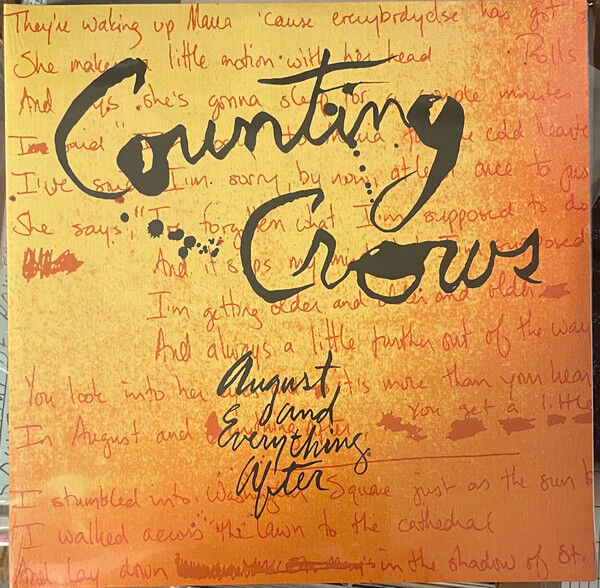 They're waking up Maria 'cause everybody else has got
She makes a little motion with her head
Rolls
And says she's gonna sleep for a couple minutes
I'm said "I'm
to Maria for the cold hearte
I've said I'm sorry by now, at least once to jus
She says, "I've forgotten what I'm supposed to do
And it slips my mind
supposed
I'm getting older and older and older
And always a little further out of the way
You look into her
it's more than your hear
In August and
after
you get a little
I stumbled into Washington Square just as the sun b
I walked across the lawn to the cathedral
And lay down
in the shadow of St.
Counting
Crows
August
and
Everything
After